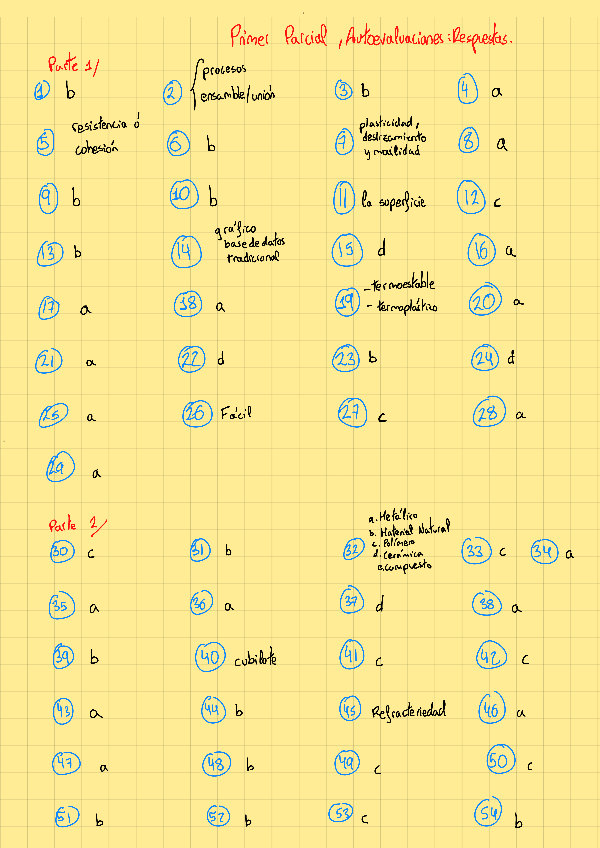 Primer Parcial, Autoevaluaciones: Respuestas.
Parte 1/
1 b
2 procesos
ensamble/unión
3 b
4 a
5 resistencia ó
cohesión
6 b
7 plasticidad,
deslizamiento
y moxlidad
8 a
9 b
10 b
11 la superficie
12 c
13 b
14 gráfico
base de datos
tradicional
15 d
16 a
17 a
18 a
19 - termoestable
- termoplástico
20 a
21 a
22 d
23 b
24 d
25 a
26 Fácil
27 c
28 a
29 a
Parte 2/
30 c
31 b
32 a. Metálico
b. Material Natural
c. Polímero
d. Cerámica
e. compuesto
33 c
34 a
35 a
36 a
37 d
38 a
39 b
40 cubilote
41 c
42 c
43 a
44 b
45 Refracteriedad
46 a
47 a
48 b
49 c
50 c
51 b
52 b
53 c
54 b